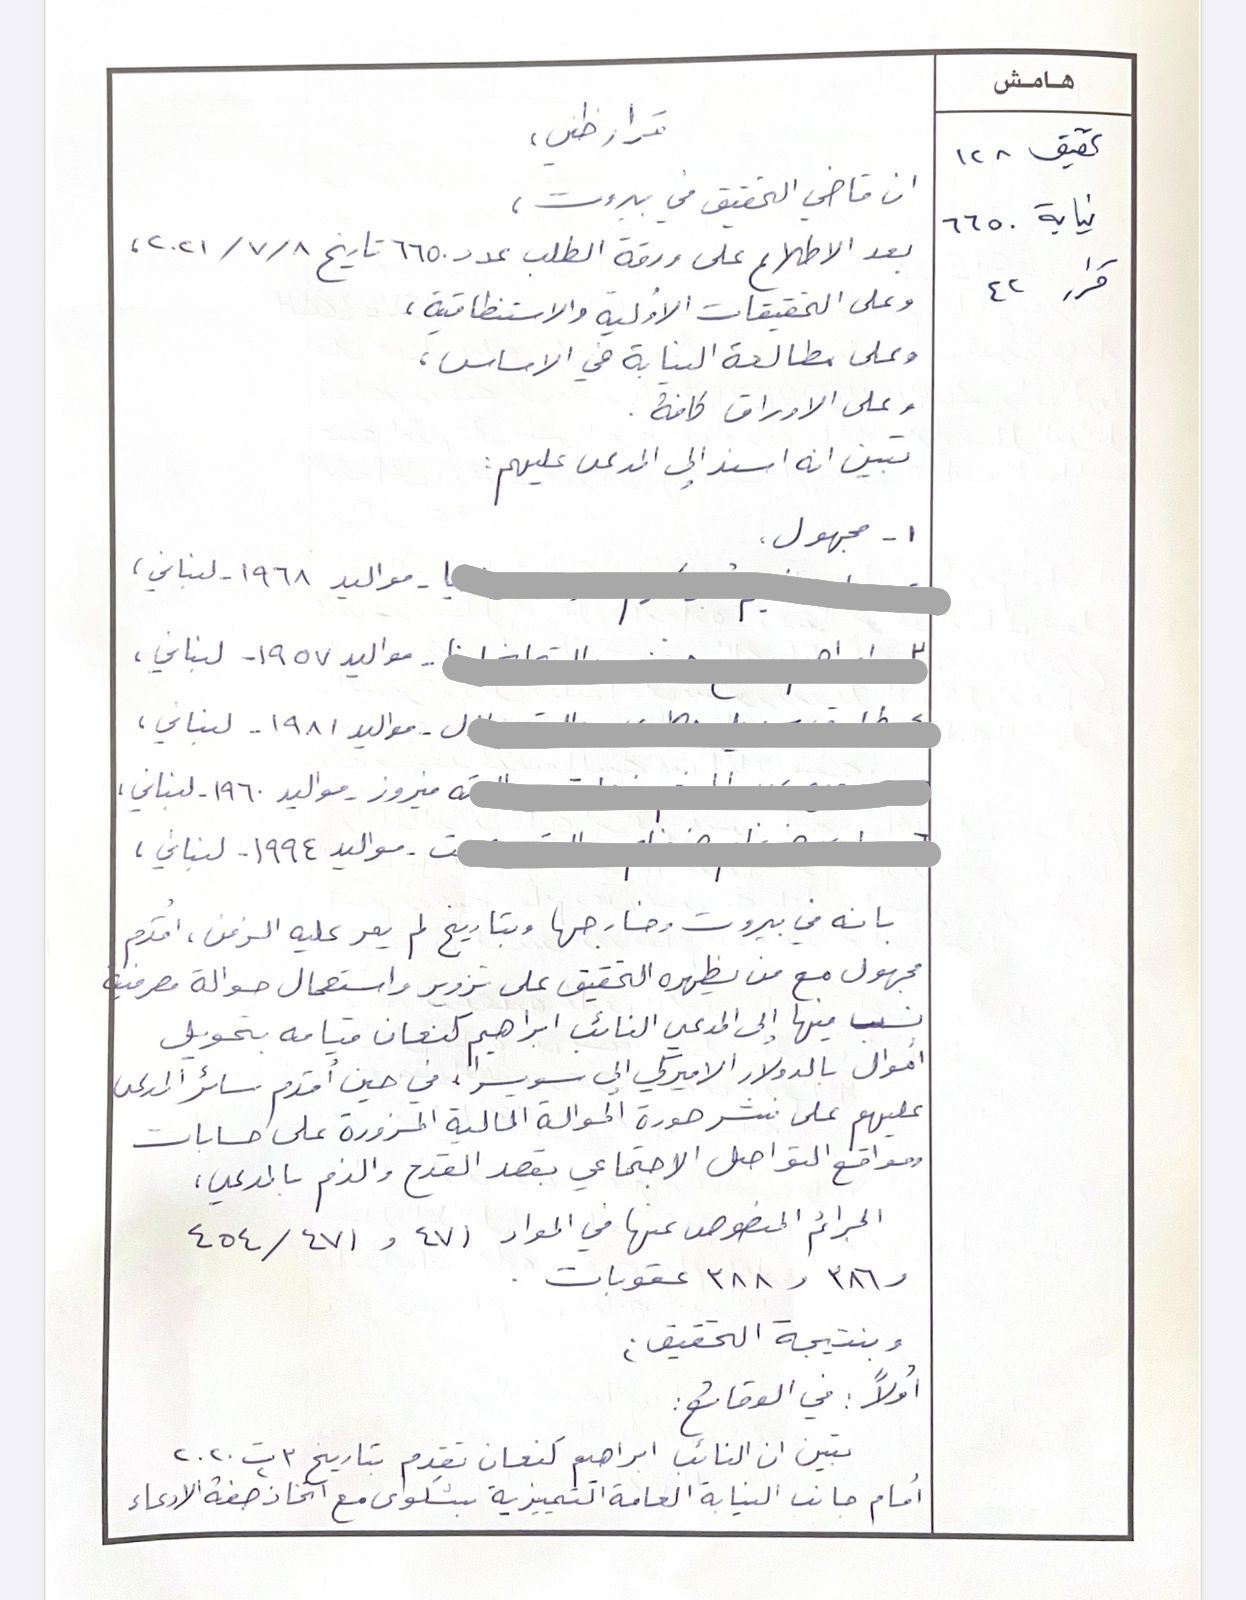 هامش
تحقيق ١٢٨
نيابة ٦٦٥٠
قرار ٤٢
قرار ظني،
ان قاضي التحقيق في بيروت،
بعد الاطلاع على ورقة الطلب عدد ٦٦٥٠ تاريخ ٨/٧/٢٠٢١،
وعلى التحقيقات الأولية والاستنطاقية،
وعلى مطالعة النيابة في الاساس،
وعلى الاوراق كافة.
تبين انه اسند إلى المدعى عليهم:
١- مجهول،
- مواليد ١٩٦٨- لبناني،
٣ - مواليد ١٩٥٧- لبناني،
- مواليد ١٩٨١- لبناني،
فيروز - مواليد ١٩٦٠- لبناني،
٦ - مواليد ١٩٩٤- لبناني،
بانه في بيروت وخارجها وبتاريخ لم يمر عليه الزمن، أقدم
مجهول مع من يظهره التحقيق على تزوير واستعمال حوالة مصرفية
نسب فيها إلى المدعي النائب ابراهيم كنعان قيامه بتحويل
أموال بالدولار الاميركي إلى سويسرا، في حين أقدم سائر المدعى
عليهم على نشر صورة الحوالة المالية المزورة على حسابات
ومواقع التواصل الاجتماعي بقصد القدح والذم بالمدعي،
الجرائم المنصوص عنها في المواد ٤٧١ و ٤٧١/٤٥٤
و ٣٨٦ و ٣٨٨ عقوبات.
وبنتيجة التحقيق:
أولاً: في الوقائع:
تبين ان النائب ابراهيم كنعان تقدم بتاريخ ٣ ت٢ ٢٠٢٠
أمام جانب النيابة العامة التمييزية بشكوى مع اتخاذ صفة الادعاء